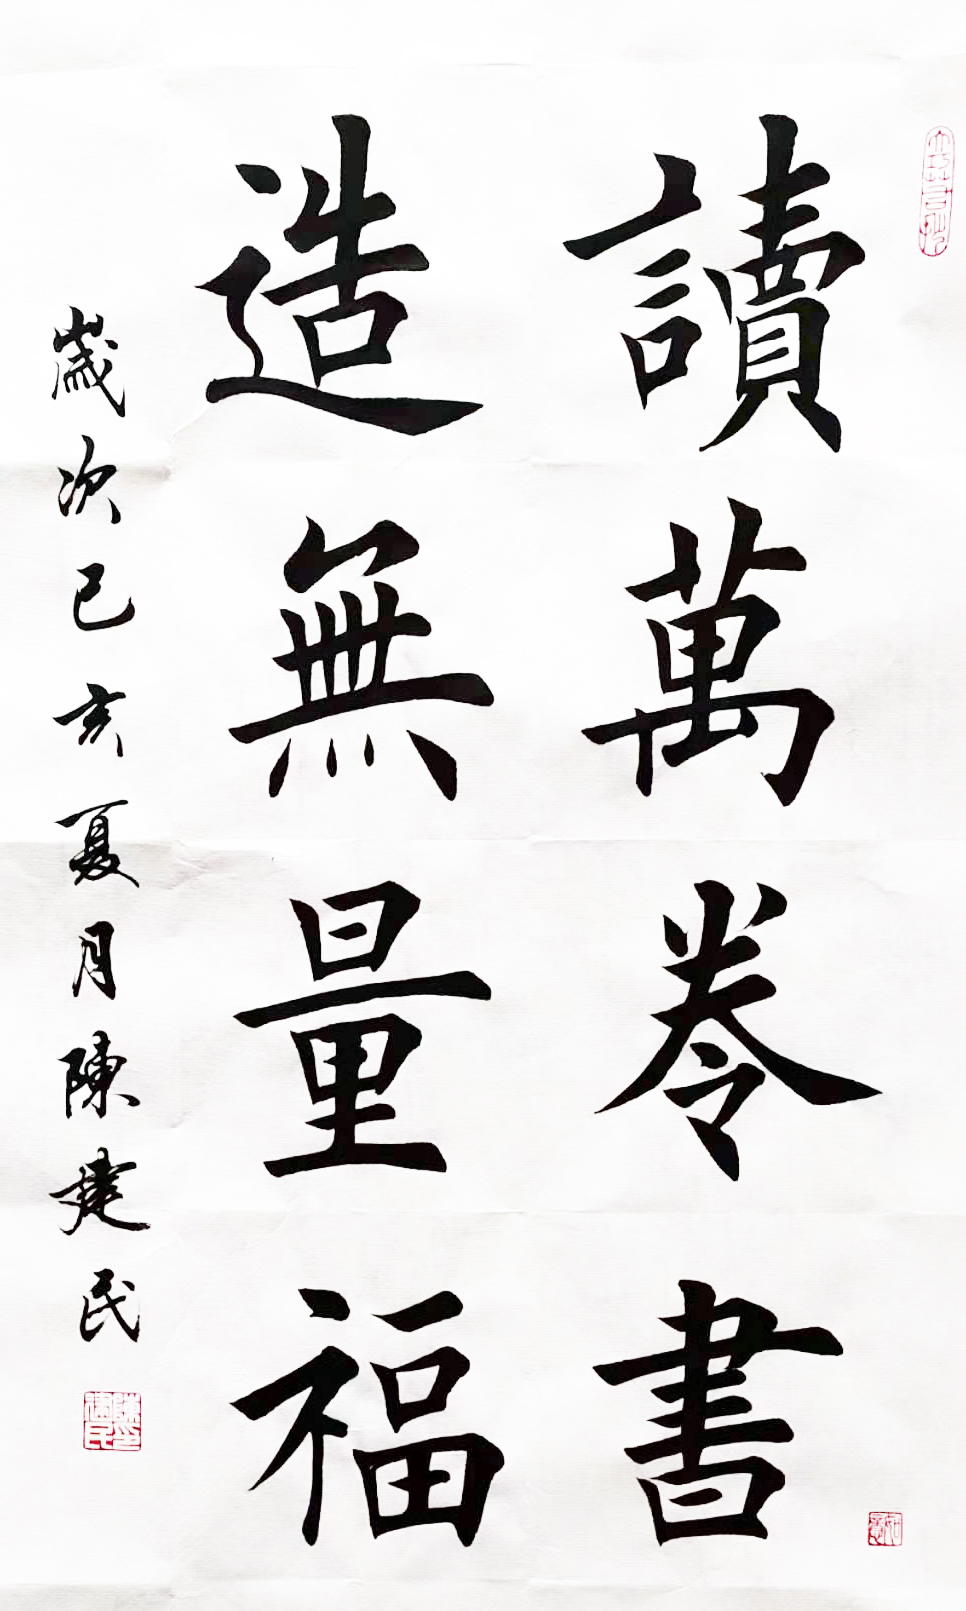 讀萬卷書
造無量福
歲次己亥夏月陳建民
陳建民印
如意